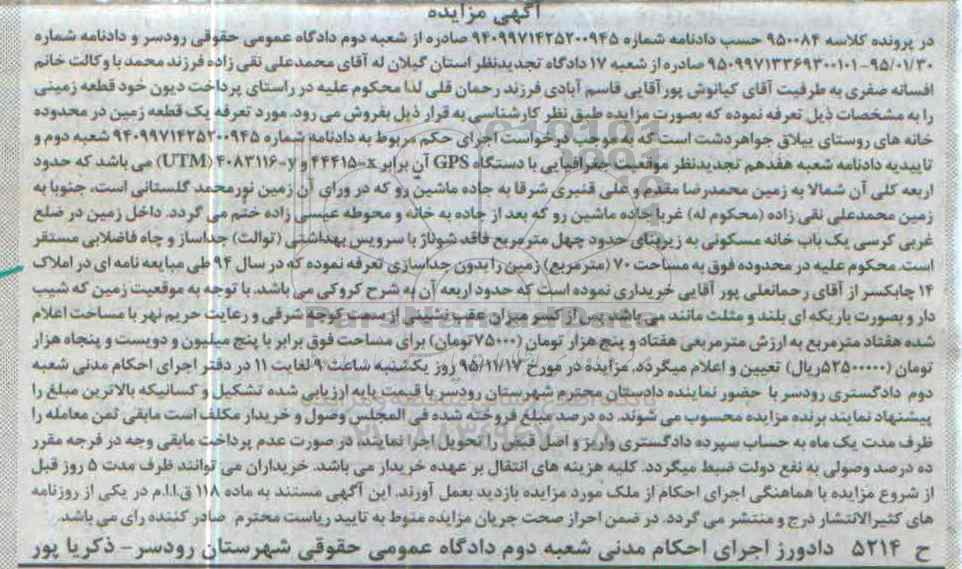 آگهی مزایده
در پرونده کلاسه ۹۵۰۰۸۴ حسب دادنامه شماره ۹۴۰۹۹۷۱۴۲۵۲۰۰۹۴۵ صادره از شعبه دوم دادگاه عمومی حقوقی رودسر و دادنامه شماره
۹۵۰۹۹۷۱۳۳۶۹۳۰۰۱۰۱-۹۵/۰۱/۳۰ صادره از شعبه ۱۷ دادگاه تجدیدنظر استان گیلان له آقای محمدعلی نقی زاده فرزند محمد با وکالت خانم
افسانه صفری به طرفیت آقای کیانوش پورآقایی قاسم آبادی فرزند رحمان قلی لذا محکوم علیه در راستای پرداخت دیون خود قطعه زمینی
را به مشخصات ذیل تعرفه نموده که بصورت مزایده طبق نظر کارشناسی به قرار ذیل بفروش می رود. مورد تعرفه یک قطعه زمین در محدوده
خانه های روستای ییلاق جواهردشت است که به موجب درخواست اجرای حکم مربوط به دادنامه شماره ۹۴۰۹۹۷۱۴۲۵۲۰۰۹۴۵ شعبه دوم و
تاییدیه دادنامه شعبه هفدهم تجدیدنظر موقعیت جغرافیایی با دستگاه GPS آن برابر x-۴۴۴۱۵ و y-۴۰۸۳۱۱۶ (UTM) می باشد که حدود
اربعه کلی آن شمالا به زمین محمدرضا مقدم و علی قنبری شرقا به جاده ماشین رو که در ورای آن زمین نورمحمد گلستانی است، جنوبا به
زمین محمدعلی نقی زاده (محکوم له) غربا جاده ماشین رو که بعد از جاده به خانه و محوطه عیسی زاده ختم می گردد. داخل زمین در ضلع
غربی کرسی یک باب خانه مسکونی به زیربنای حدود چهل مترمربع فاقد شوناژ با سرویس بهداشتی (توالت) جداساز و چاه فاضلابی مستقر
است. محکوم علیه در محدوده فوق به مساحت ۷۰ (مترمربع) زمین را بدون جداسازی تعرفه نموده که در سال ۹۴ طی مبایعه نامه ای در املاک
۱۴ چابکسر از آقای رحمانعلی پور آقایی خریداری نموده است که حدود اربعه آن به شرح کروکی می باشد. با توجه به موقعیت زمین که شیب
دار و بصورت باریکه ای بلند و مثلث مانند می باشد پس از کسر میزان عقب نشینی از سمت کوچه شرقی و رعایت حریم نهر با مساحت اعلام
شده هفتاد مترمربع به ارزش مترمربعی هفتاد و پنج هزار تومان (۷۵۰۰۰تومان) برای مساحت فوق برابر با پنج میلیون و دویست و پنجاه هزار
تومان (۵۲۵۰۰۰۰۰ریال) تعیین و اعلام میگردد. مزایده در مورخ ۹۵/۱۱/۱۷ روز یکشنبه ساعت ۹ لغایت ۱۱ در دفتر اجرای احکام مدنی شعبه
دوم دادگستری رودسر با حضور نماینده دادستان محترم شهرستان رودسر با قیمت پایه ارزیابی شده تشکیل و کسانیکه بالاترین مبلغ را
پیشنهاد نمایند برنده مزایده محسوب می شوند. ده درصد مبلغ فروخته شده فی المجلس وصول و خریدار مکلف است مابقی ثمن معامله را
ظرف مدت یک ماه به حساب سپرده دادگستری واریز و اصل قبض را تحویل اجرا نمایند. در صورت عدم پرداخت مابقی وجه در فرجه مقرر
ده درصد وصولی به نفع دولت ضبط میگردد. کلیه هزینه های انتقال بر عهده خریدار می باشد. خریداران می توانند ظرف مدت ۵ روز قبل
از شروع مزایده با هماهنگی اجرای احکام از ملک مورد مزایده بازدید بعمل آورند. این آگهی مستند به ماده ۱۱۸ ق.ا.ا.م در یکی از روزنامه
های کثیرالانتشار درج و منتشر می گردد. در ضمن احراز صحت جریان مزایده منوط به تایید ریاست محترم صادر کننده رای می باشد.
ح ۵۲۱۴ دادورز اجرای احکام مدنی شعبه دوم دادگاه عمومی حقوقی شهرستان رودسر- ذکریا پور